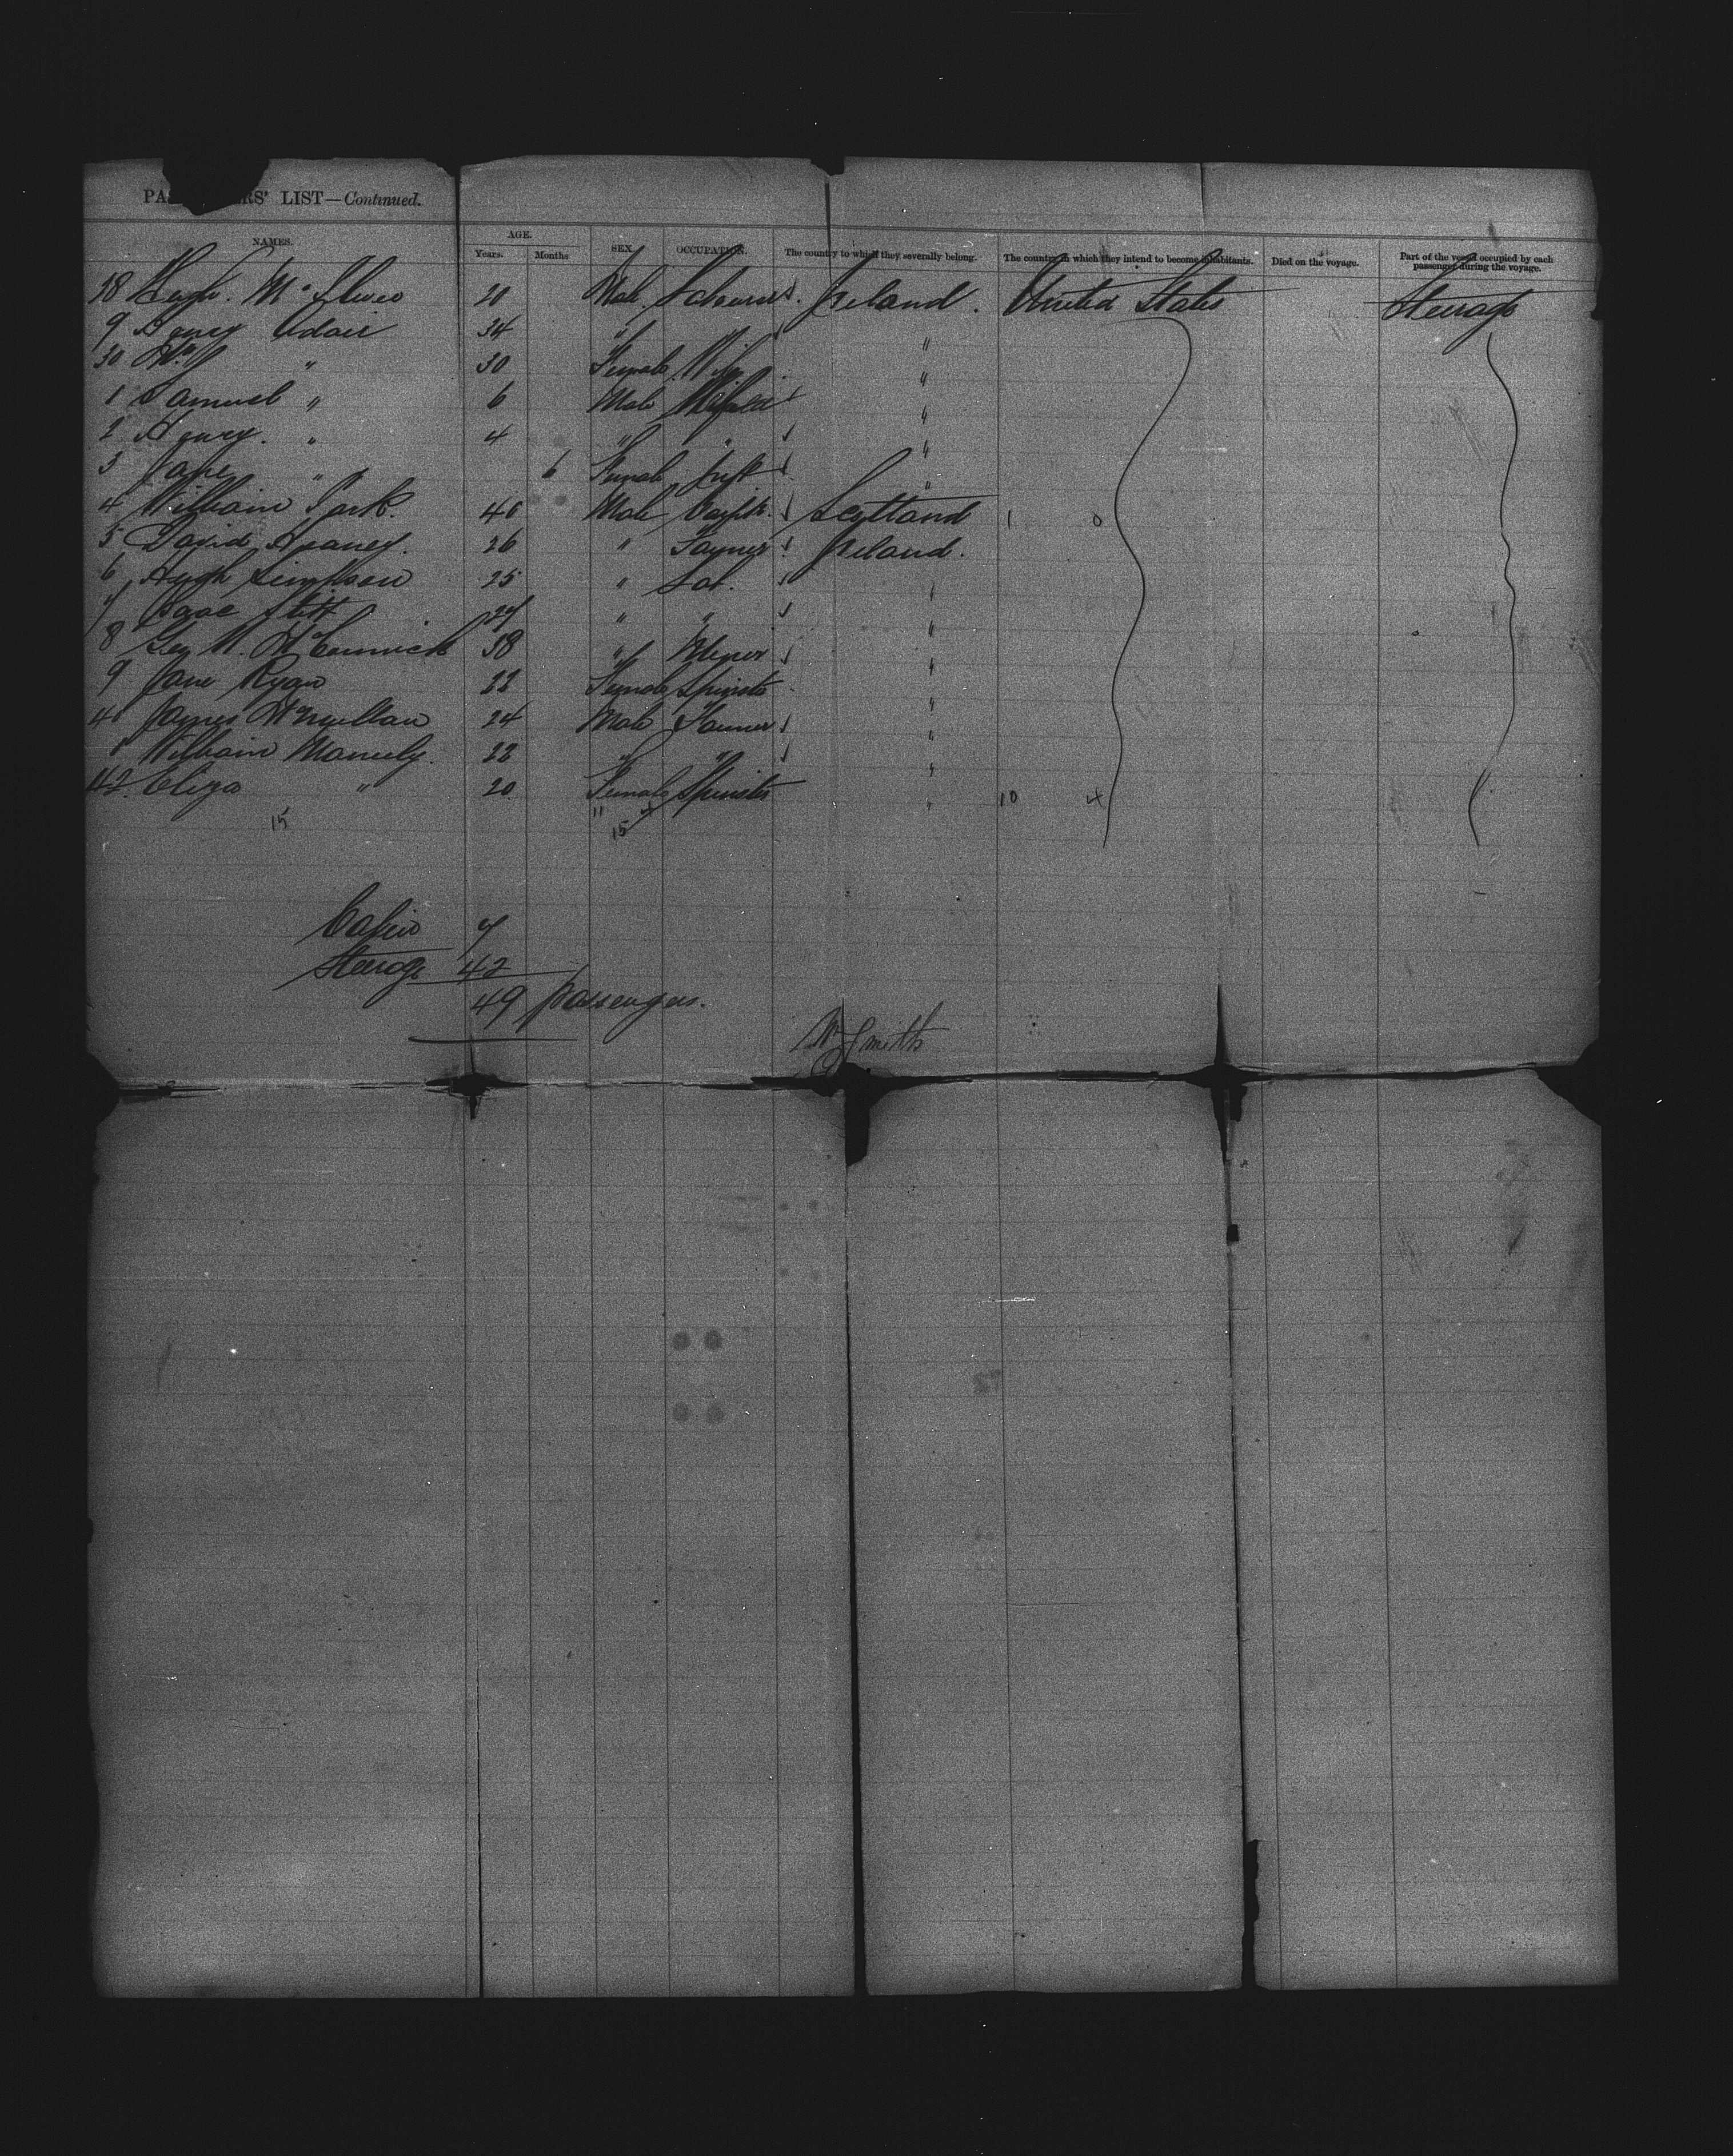 PAS RS' LIST—Continued.
NAMES. AGE. Years. Months SEX. OCCUPATION. The country to which they severally belong. The country in which they intend to become inhabitants. Died on the voyage. Part of the vessel occupied by each passenger during the voyage.
28 Hugh. Mc 20 Male Labourer Ireland. United States Steerage
9 Henry Adair 34 " "
30 " 30 Female Wife "
1 Samuel " 6 Male "
2 Henry. " 4 " " "
3 Jane " 6 Female Inft "
4 William Park. 40 Male Carptr. Scotland 1 0
5 David Heaney. 26 " Farmer Ireland.
6 Hugh Simpson 25 " Lab. "
7 Isaac Stitt 27 " " "
8 Geo M. McCormick 38 " "
9 Jane Ryan 22 Female Spinster "
40 James McMullan 24 Male Farmer "
1 William Manuely. 22 " " "
42. Eliza " 20 Female Spinster " 10 4
15 11 4
15
Cabin 7
Steerage 42
49 passengers.
W Smith